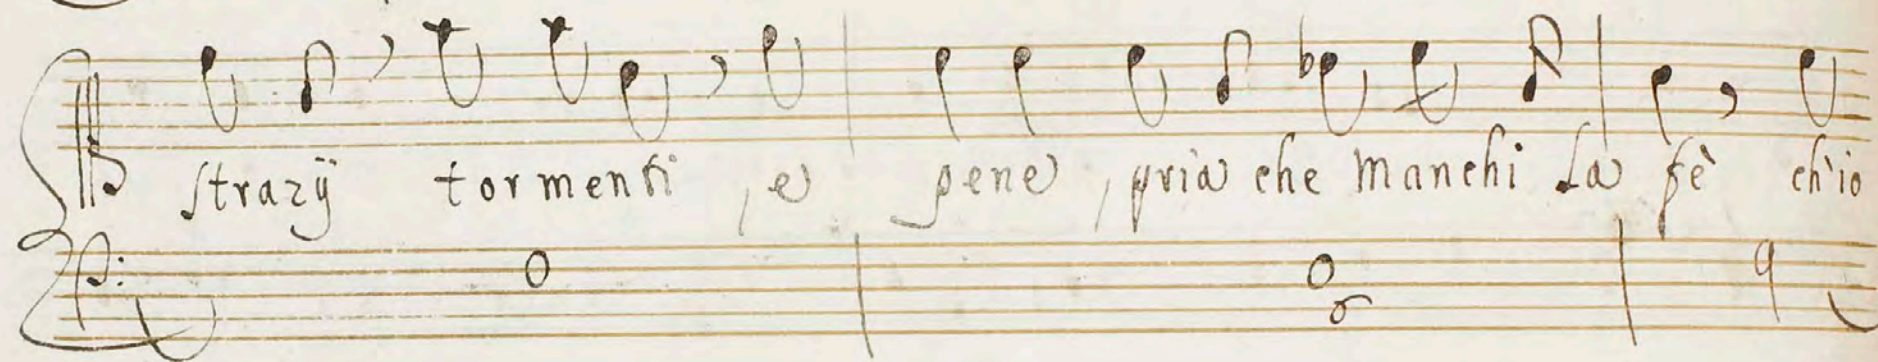 strazÿ tormenti, e pene, pria che manchi La fè ch'io
6